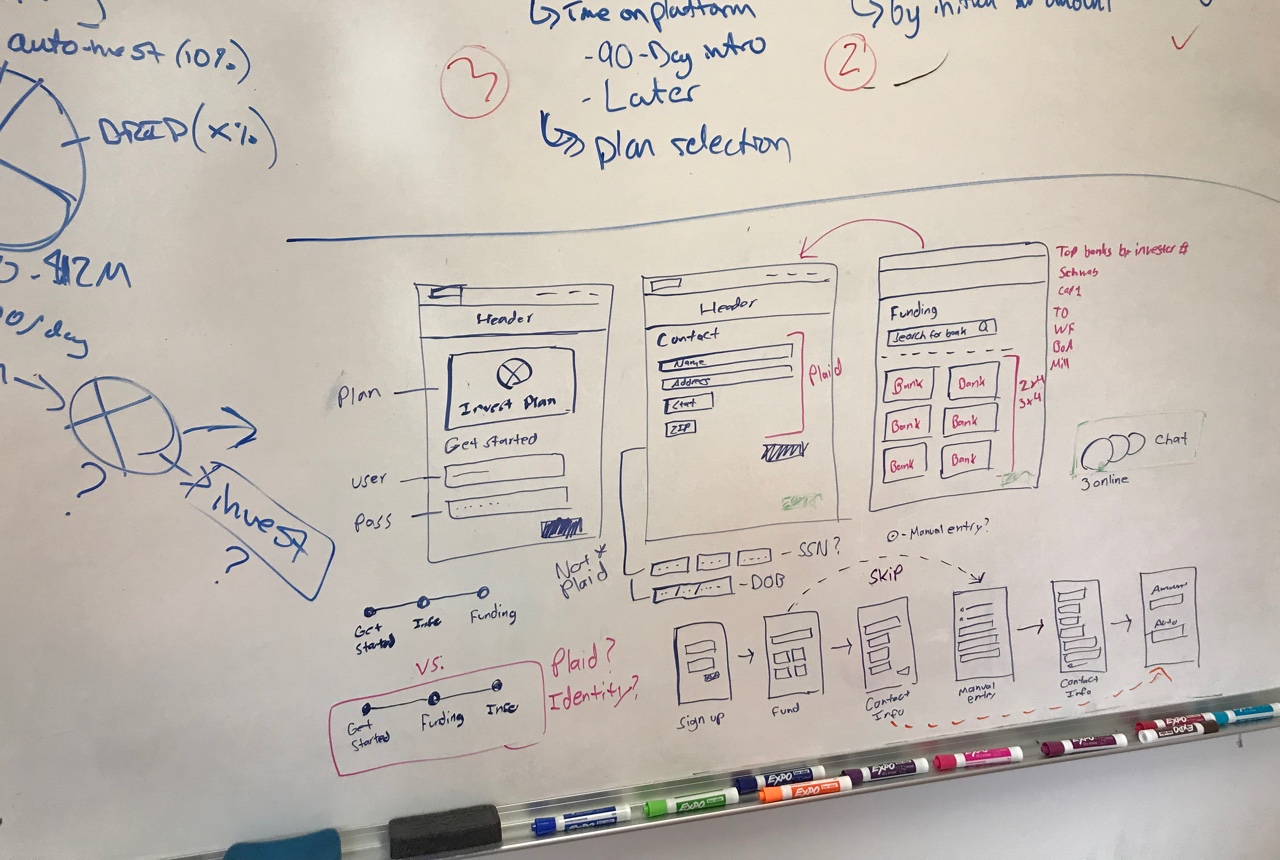 auto-invest (10%)
DRIP (x%)
$12M
/day
?
invest
?
↳ Time on platform
- 90-Day intro
- Later
↳> plan selection
3
↳ by initial amount
2
Header
Plan
Invest Plan
Get started
user
pass
Not *
Plaid
Header
Contact
Name
Address
ZIP
Plaid
- SSN?
- DOB
Funding
Search for bank
Bank
Bank
Bank
Bank
Bank
Bank
2x4
3x4
Top banks by investor #
Schwab
Cap1
TD
WF
BoA
Mill
Chat
3 online
- Manual entry?
Get
Started
Info
Funding
vs.
Get
Started
Funding
Info
Plaid?
Identity?
Skip
Sign up
Fund
Contact
Info
Manual
entry
Contact
Info
Amount
Auto
EXPO
EXPO
EXPO
EXPO
EXPO
EXPO
EXPO
EXPO
EXPO